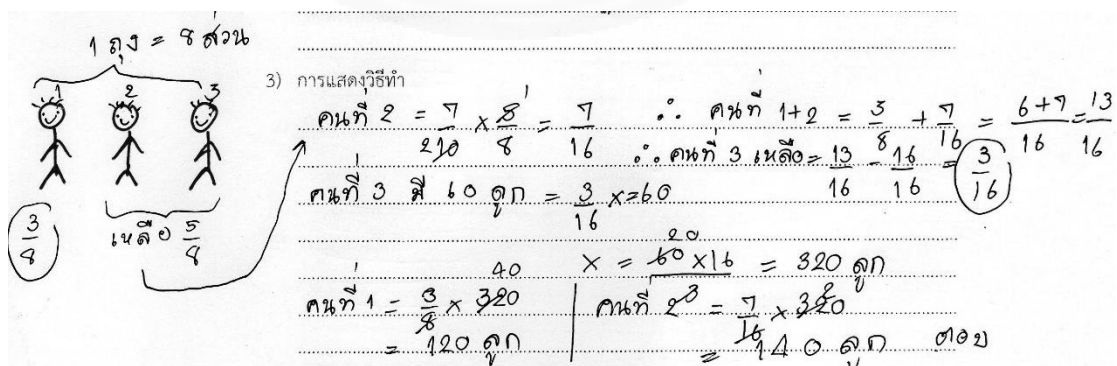 1 ถุง = 8 ส่วน
1 2 3
3/8
เหลือ 5/8
3) การแสดงวิธีทำ
คนที่ 2 = 7/10 × 5/8 = 7/16 ∴ คนที่ 1+2 = 3/8 + 7/16 = 6+7/16 = 13/16
∴ คนที่ 3 เหลือ = 13/16 - 16/16 = 3/16
คนที่ 3 มี 60 ลูก = 3/16 x = 60
x = 60 × 16 / 3 = 320 ลูก
คนที่ 1 = 3/8 × 320
= 120 ลูก
คนที่ 2 = 7/16 × 320
= 140 ลูก ตอบ